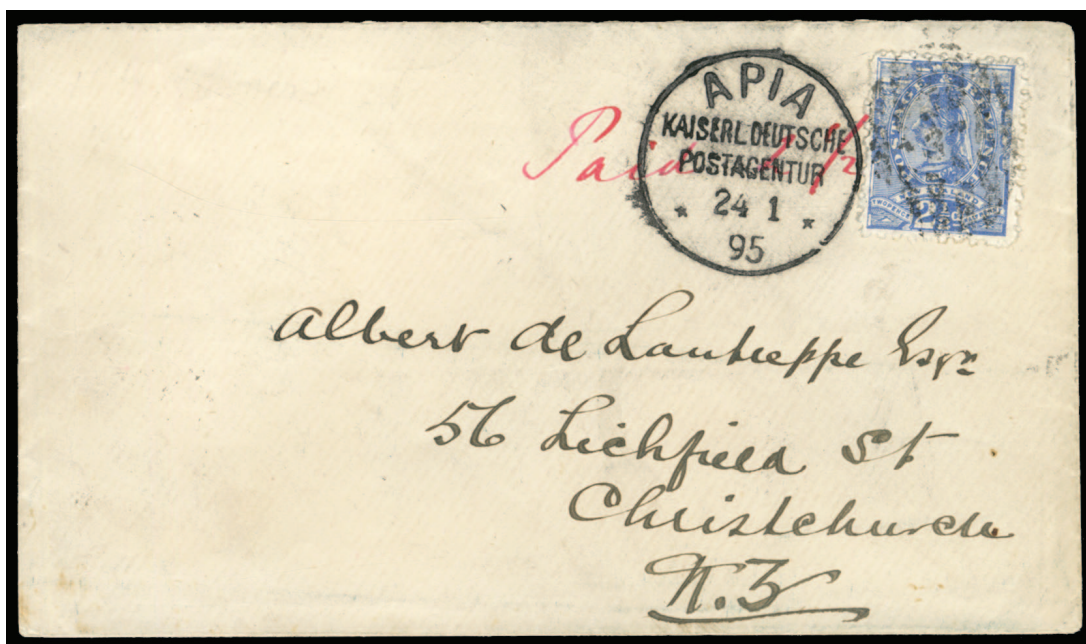 APIA
KAISERL. DEUTSCHE
POSTAGENTUR
* 24 1 *
95
Paid
2½
Albert de Lautreppe Esqre
56 Lichfield St
Christchurch
N.Z